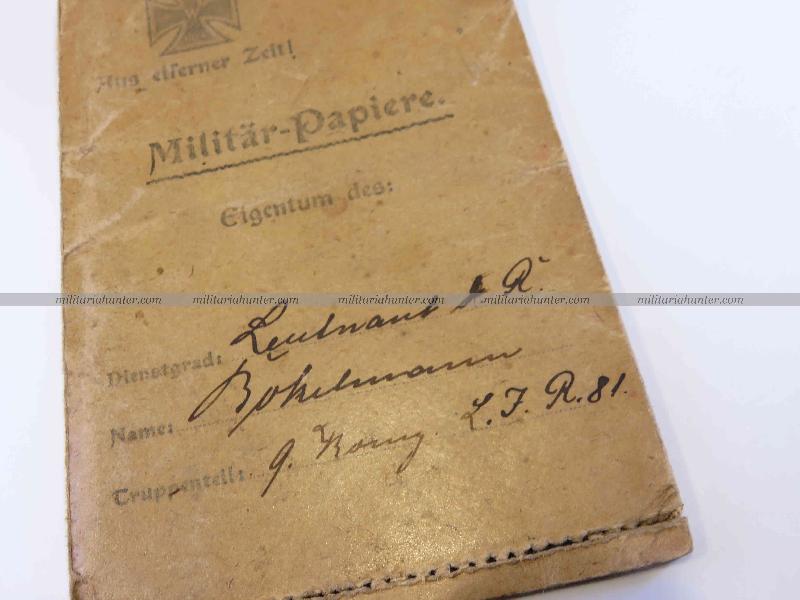 Aus eiserner Zeit!
Militär-Papiere.
Eigentum des:
militariahunter.com militariahunter.com militariahunter.com militariahunter.com militariahunter.com
Dienstgrad: Leutnant d R.
Name: Bökelmann
Truppenteil: 9. Komp L. I. R. 81.